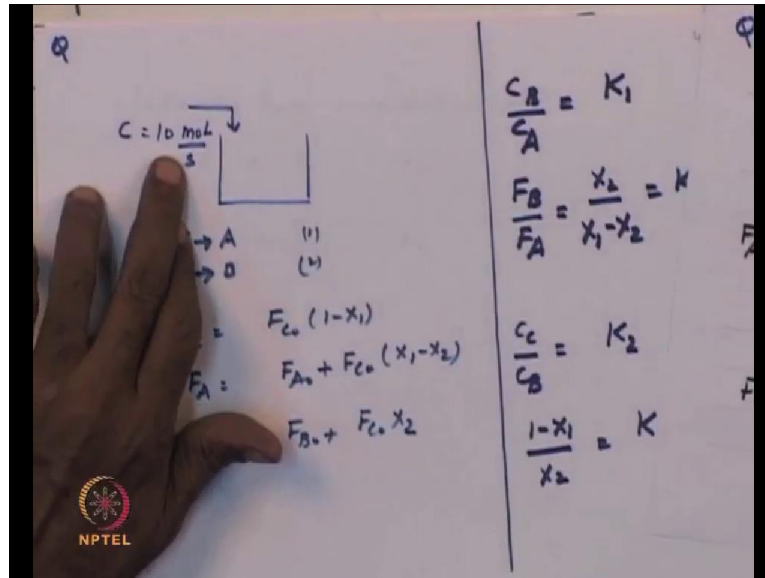 Q
C = 10 mol/s
→ A (1)
→ B (2)
= F_C₀ (1-X₁)
F_A = F_A₀ + F_C₀ (X₁-X₂)
F_B₀ + F_C₀ X₂
C_B/C_A = K₁
F_B/F_A = X₂/(X₁-X₂) = K
C_C/C_B = K₂
(1-X₁)/X₂ = K
Q
F
F
NPTEL